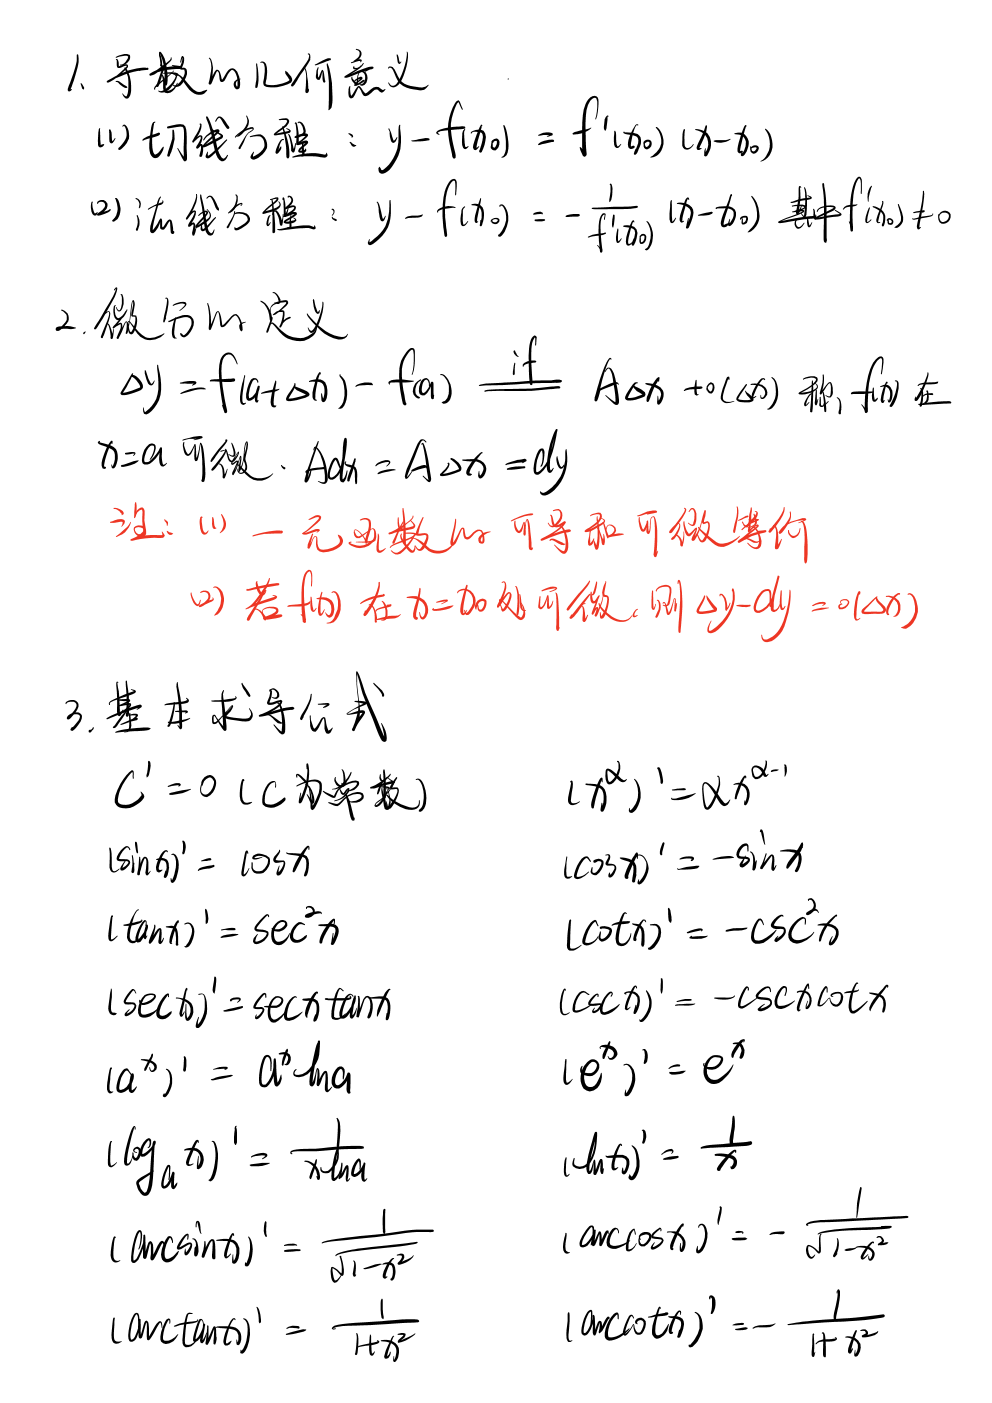 1. 导数的几何意义
(1) 切线方程：y-f(x₀) = f'(x₀)(x-x₀)
(2) 法线方程：y-f(x₀) = -1/f'(x₀) (x-x₀) 其中f'(x₀)≠0
2. 微分的定义
Δy=f(a+Δx)-f(a) ==if== AΔx+o(Δx) 称, f(x)在
x=a可微. Adx=AΔx=dy
注: (1) 一元函数的可导和可微等价
(2) 若f(x)在x=x₀处可微, 则Δy-dy=o(Δx)
3. 基本求导公式
C'=0 (C为常数) (x^α)'=αx^(α-1)
(sinx)'=cosx (cosx)'=-sinx
(tanx)'=sec²x (cotx)'=-csc²x
(secx)'=secxtanx (cscx)'=-cscxcotx
(a^x)'=a^x lna (e^x)'=e^x
(log_a x)'=1/(xlna) (lnx)'=1/x
(arcsinx)'=1/√(1-x²) (arccosx)'=-1/√(1-x²)
(arctanx)'=1/(1+x²) (arccotx)'=-1/(1+x²)